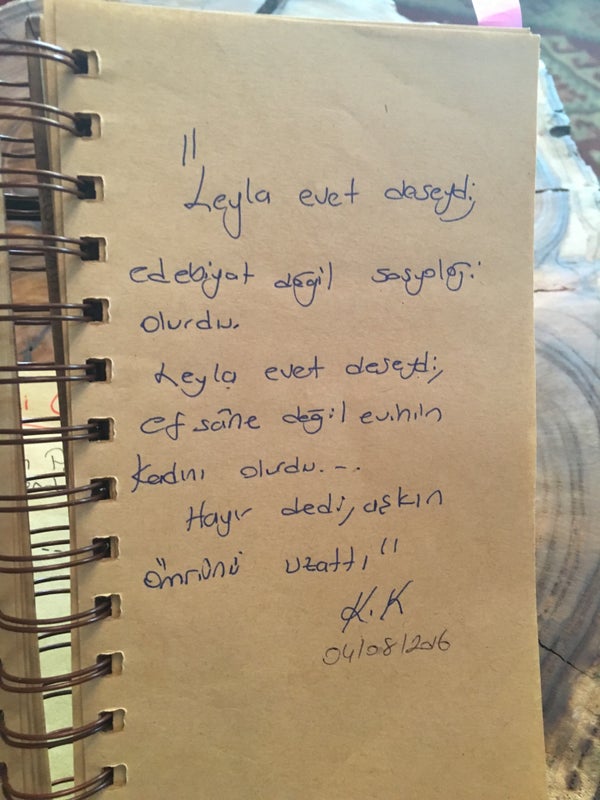 "Leyla evet deseydi,
edebiyat değil sosyoloji
olurdu.
Leyla evet deseydi,
efsâne değil evinin
kadını olurdu...
Hayır dedi, aşkın
ömrünü uzattı"
K.K
04/08/2016